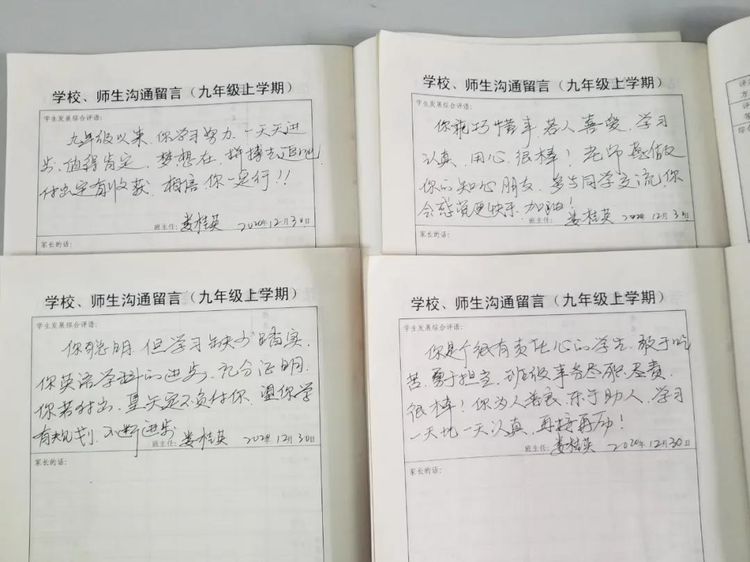 学校、师生沟通留言（九年级上学期）
学生发展综合评语：
九年级以来，你学习努力，一天天进
步，值得肯定，梦想在，拼搏去追吧，
付出定有收获，相信你一定行！！
班主任：娄桂英 2020年12月30日
家长的话：
学校、师生沟通留言（九年级上学期）
学生发展综合评语：
你乖巧懂事，若人喜爱，学习
认真，用心，很棒！老师愿做
你的知心朋友，多与同学交流，你
会感觉更快乐，加油！
班主任：娄桂英 2020年12月30日
家长的话：
学校、师生沟通留言（九年级上学期）
学生发展综合评语：
你聪明，但学习缺少踏实，
你英语学科的进步，充分证明，
你若付出，夏天定不负付你，望你学
有规划，不断进步
班主任：娄桂英 2020年12月30日
家长的话：
学校、师生沟通留言（九年级上学期）
学生发展综合评语：
你是个很有责任心的学生，敢于吃
苦，勇于担当，班级事务尽职尽责，
很棒！你为人善良，乐于助人，学习
一天比一天认真，再接再厉！
班主任：娄桂英 2020年12月30日
家长的话：